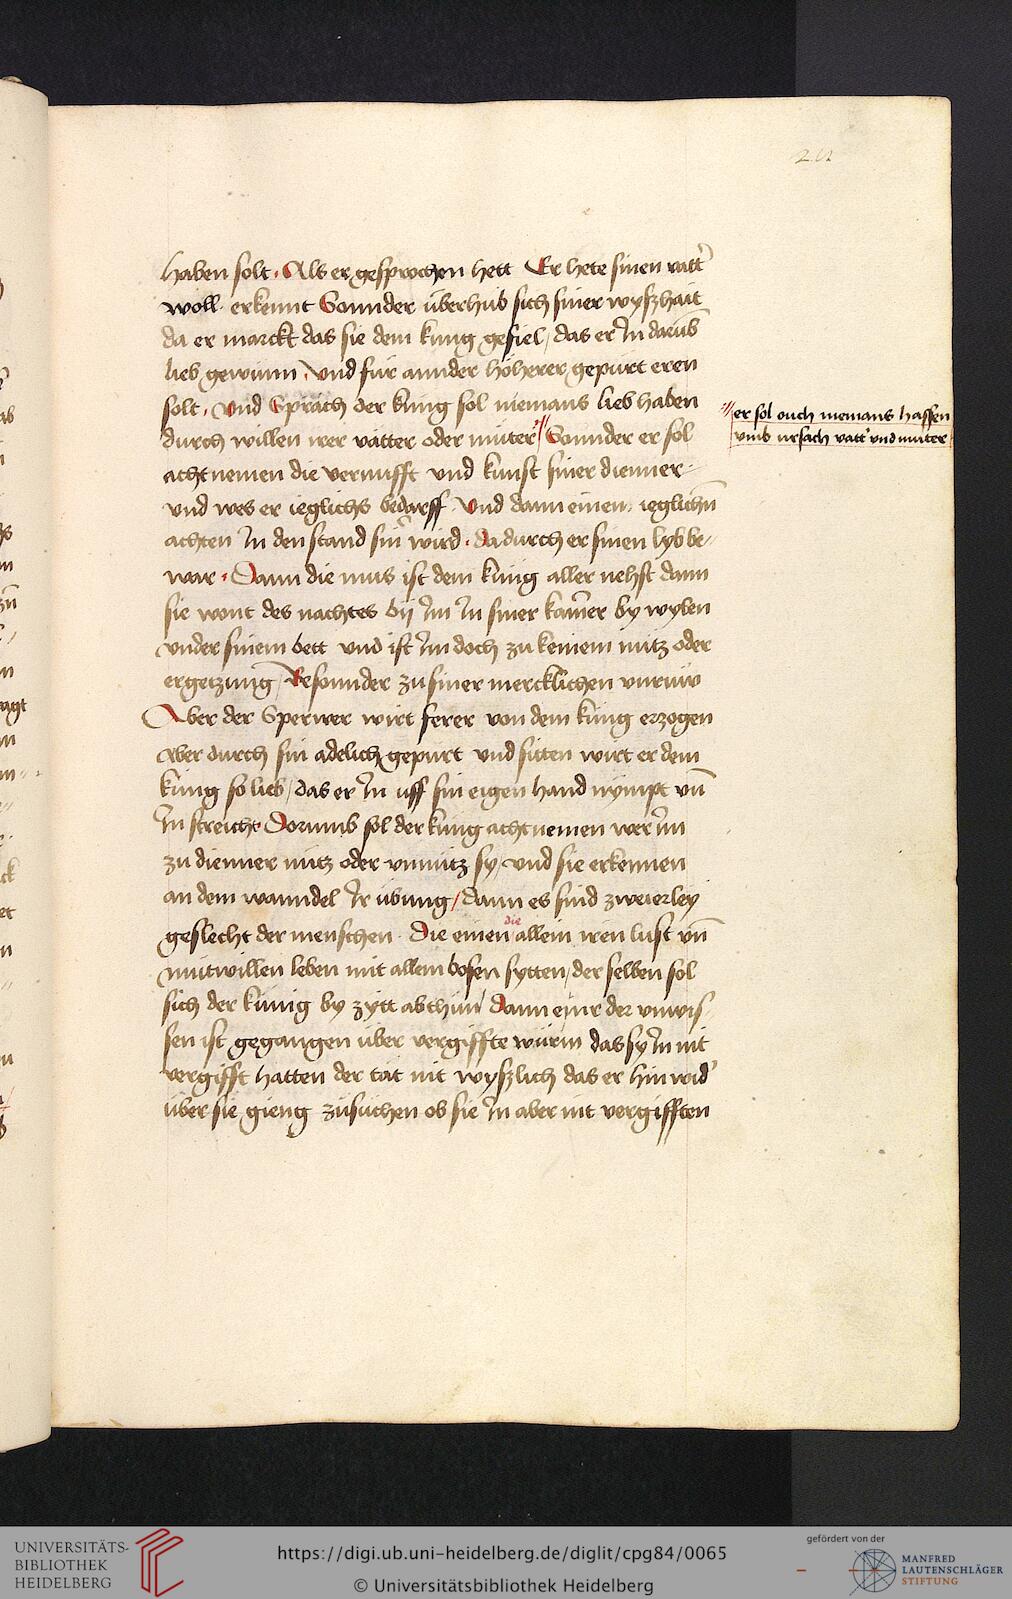 haben solt. Als er gesprochen hett Er hete sinen vatt͛
woll erkennt Sonnder überhub sich siner wyszhait
da er marckt das sie dem kung gefiel / das er In darūb
lieb gewunn. Und für annder höherer gepurt eren
solt. Und Sprach der kung sol niemans lieb haben
durch willen irer vätter oder müter // Sonnder er sol
// er sol ouch niemans hassen
vmb ursach vatt͛ vnd muter
acht nemen die vernufft vnd kunst siner diener
vnd wes er ieglichs bedarff. Und dann einen ieglichn̄
achten In den stand sin͛ wird. Dadurch er sinen lyb be-
war. Dann die mus ist dem küng aller nehst dann
sie wont des nachtes by Im In siner kam̄er by wylen
vnder sinem bett vnd ist Im doch zu keinem nutz oder
ergetzung / Besonnder zu siner mercklichen vnruw
Aber der Sperwer wirt ferer von dem küng erzogen
Aber durch sin adelich gepurt vnd sitten wirt er dem
küng so lieb / das er In uff sin eigen hand nympt vn̄
In streicht Dorumb sol der küng acht nemen wer Im
zu diener nütz oder vnnütz sy / vnd sie erkennen
an dem wanndel Ir übung / Dann es sind zweierley
geslecht der menschen. Die einen die allein iren lust vn̄
mütwillen leben mit allem bosen sytten / der selben sol
sich der künig by zytt abthün / Dann einr der vnwis-
sen ist gegangen über vergiffte würm das sy In nit
vergifft hatten der tät nit wyszlich das er hin wid͛
über sie gieng zusüchen ob sie In aber nit vergifften
UNIVERSITÄTS-
BIBLIOTHEK
HEIDELBERG
https://digi.ub.uni-heidelberg.de/diglit/cpg84/0065
© Universitätsbibliothek Heidelberg
gefördert von der
MANFRED
LAUTENSCHLÄGER
STIFTUNG